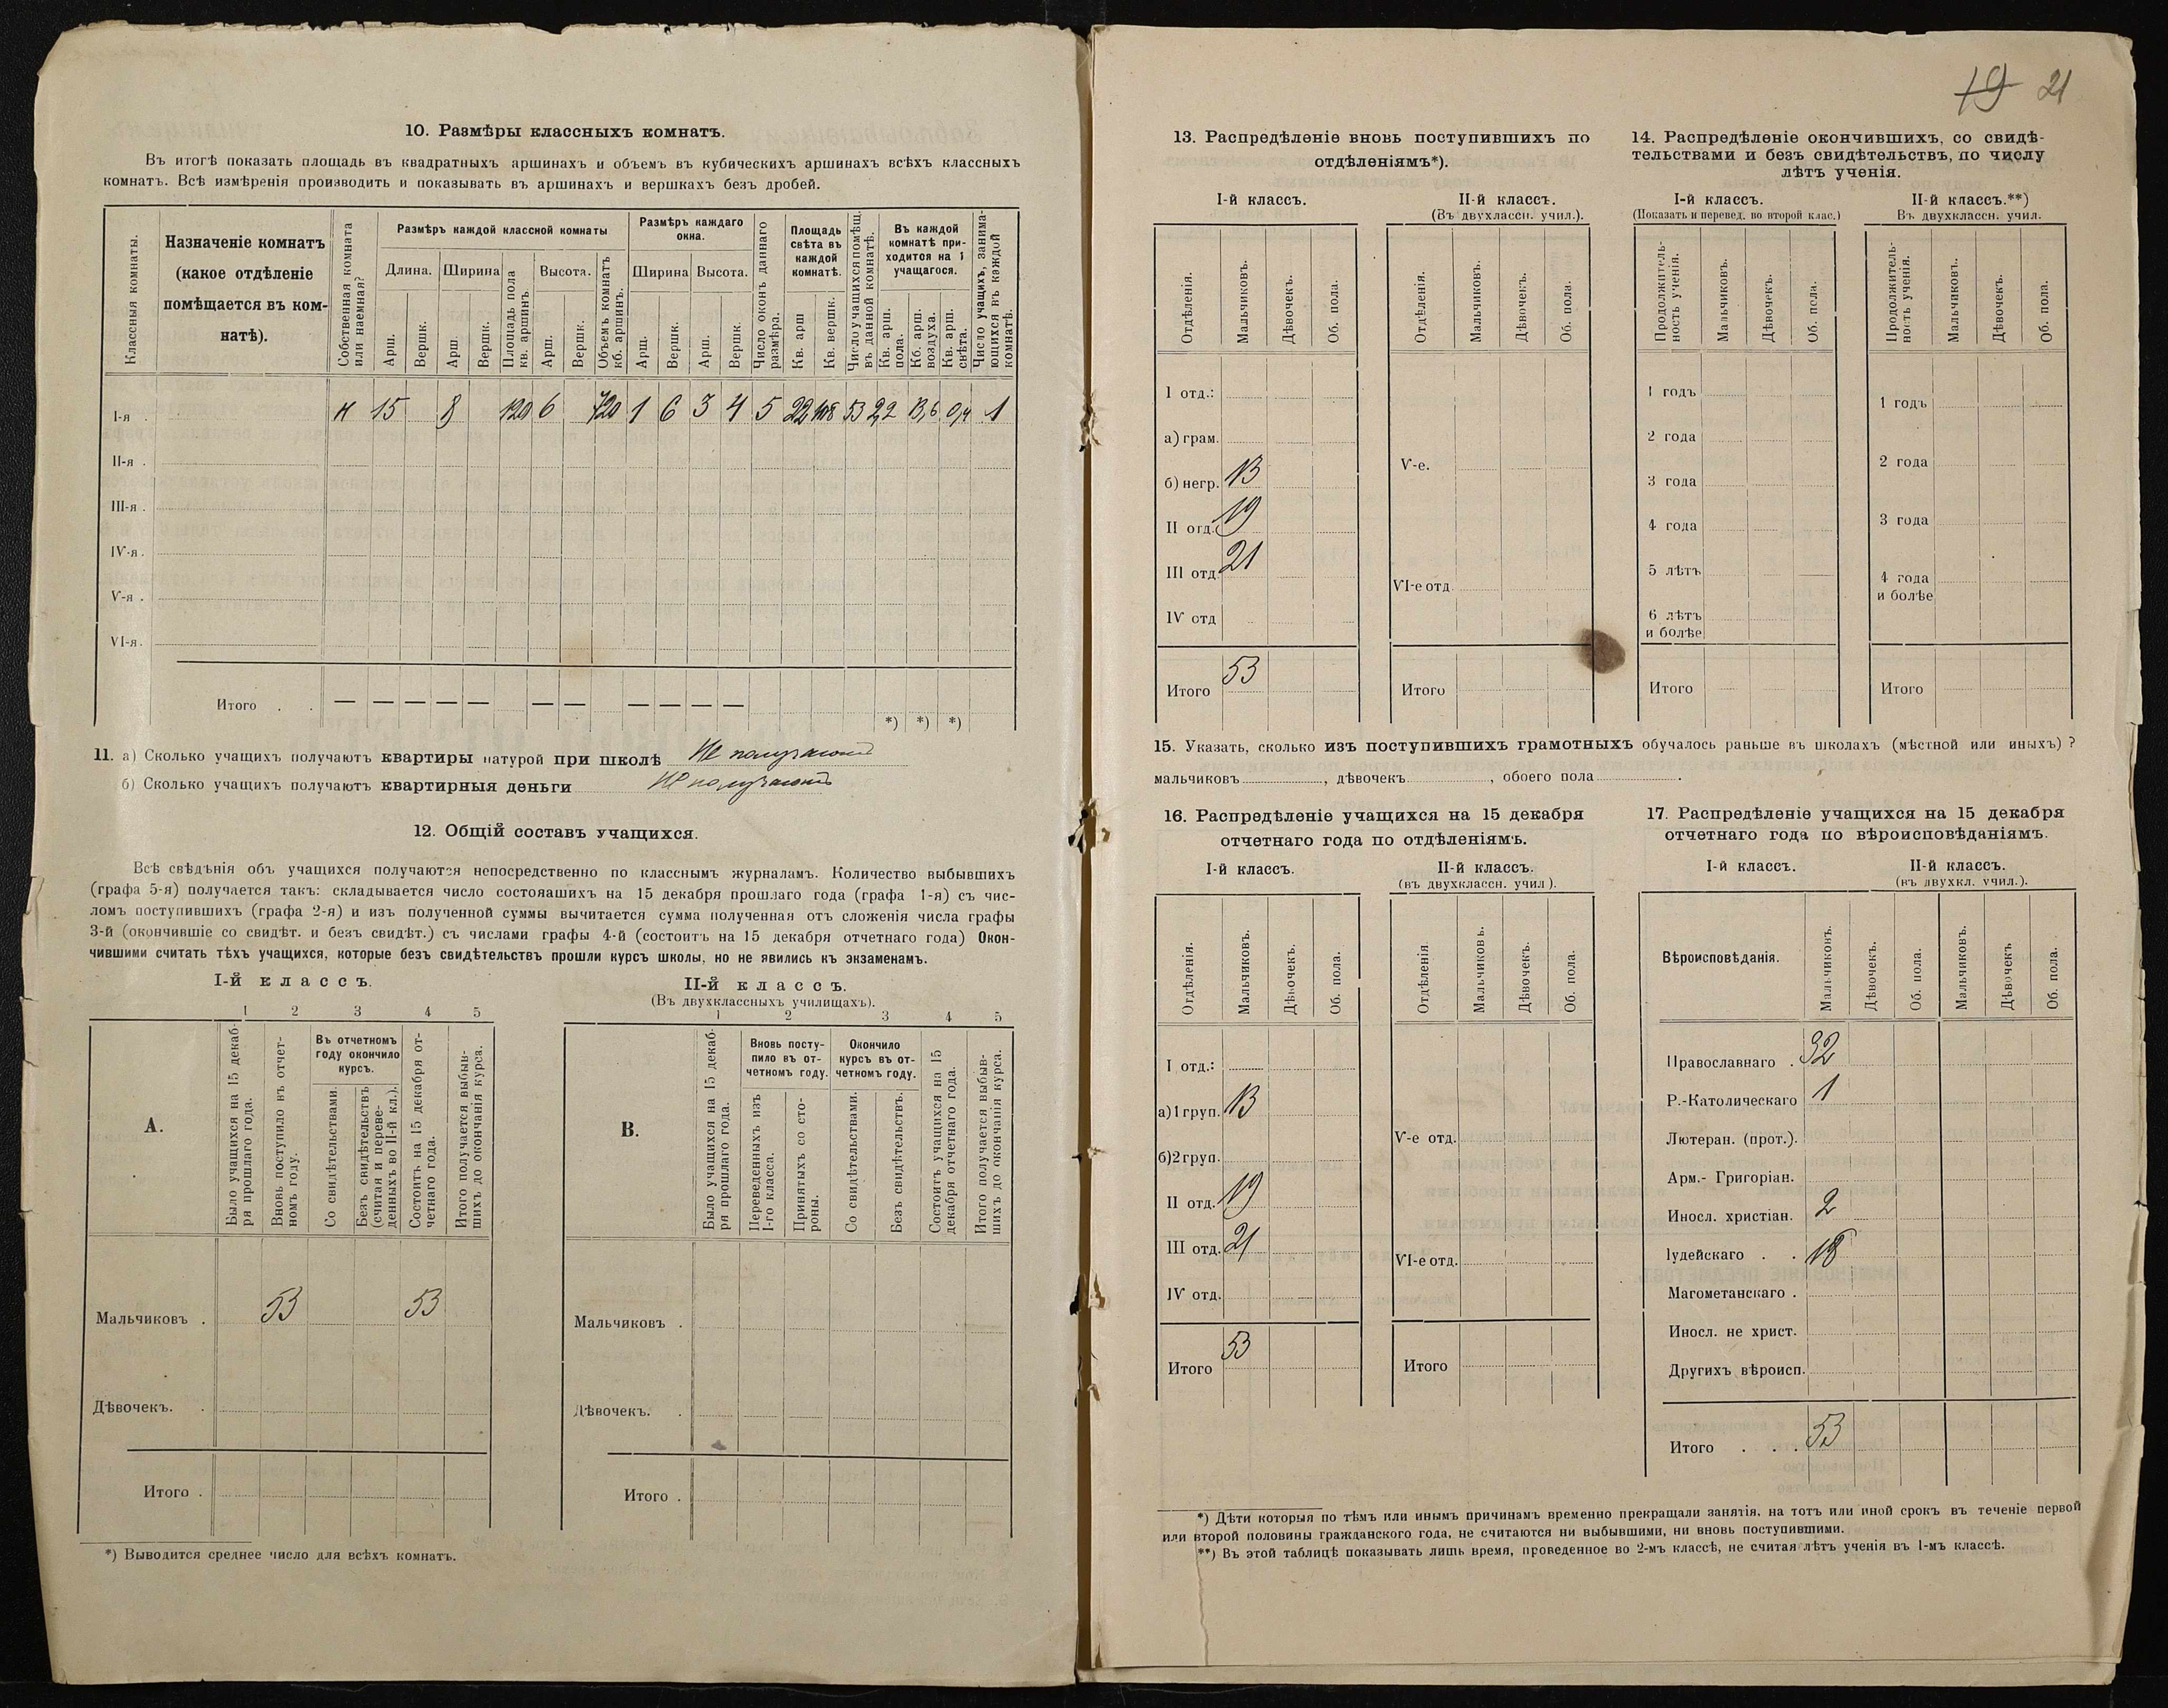 10. Размѣры классныхъ комнатъ.
Въ итогѣ показать площадь въ квадратныхъ аршинахъ и объемъ въ кубическихъ аршинахъ всѣхъ классныхъ
комнатъ. Всѣ измѣренія производить и показывать въ аршинахъ и вершкахъ безъ дробей.
Классныя комнаты.
Назначеніе комнатъ
(какое отдѣленіе
помѣщается въ ком-
натѣ).
Собственная комната
или наемная?
Размѣръ каждой классной комнаты
Длина. Ширина Площадь пола
кв. аршинъ. Высота. Объемъ комнатъ
кб. аршинъ.
Арш. Вершк. Арш. Вершк. Арш. Вершк.
Размѣръ каждаго
окна.
Ширина Высота.
Арш. Вершк. Арш. Вершк.
Число оконъ даннаго
размѣра.
Площадь
свѣта въ
каждой
комнатѣ.
Кв. арш Кв. вершк.
Число учащихся помѣщ.
въ данной комнатѣ.
Въ каждой
комнатѣ при-
ходится на 1
учащагося.
Кв. арш.
пола.
Кб. арш.
воздуха.
Кв. арш.
свѣта.
Число учащихъ, занима-
ющихся въ каждой
комнатѣ.
I-я . н 15 8 120 6 720 1 6 3 4 5 22 108 53 2,2 13,6 0,4 1
II-я .
III-я .
IV-я .
V-я .
VI-я.
Итого . . — — — — — — — — — — — *) *) *)
11. а) Сколько учащихъ получаютъ квартиры натурой при школѣ Не получают
б) Сколько учащихъ получаютъ квартирныя деньги Не получают
12. Общій составъ учащихся.
Всѣ свѣдѣнія объ учащихся получаются непосредственно по класснымъ журналамъ. Количество выбывшихъ
(графа 5-я) получается такъ: складывается число состоящихъ на 15 декабря прошлаго года (графа 1-я) съ чис-
ломъ поступившихъ (графа 2-я) и изъ полученной суммы вычитается сумма полученная отъ сложенія числа графы
3-й (окончившіе со свидѣт. и безъ свидѣт.) съ числами графы 4-й (состоитъ на 15 декабря отчетнаго года) Окон-
чившими считать тѣхъ учащихся, которые безъ свидѣтельствъ прошли курсъ школы, но не явились къ экзаменамъ.
I-й классъ.
1 2 3 4 5
А.
Было учащихся на 15 декаб-
ря прошлаго года.
Вновь поступило въ отчет-
номъ году.
Въ отчетномъ
году окончило
курсъ.
Со свидѣтельствами.
Безъ свидѣтельствъ
(считая и переве-
денныхъ во II-й кл.).
Состоитъ на 15 декабря от-
четнаго года.
Итого получается выбыв-
шихъ до окончанія курса.
Мальчиковъ . 53 53
Дѣвочекъ. .
Итого .
*) Выводится среднее число для всѣхъ комнатъ.
II-й классъ.
(Въ двухклассныхъ училищахъ).
1 2 3 4 5
В.
Было учащихся на 15 декаб-
ря прошлаго года.
Вновь посту-
пило въ от-
четномъ году.
Переведенныхъ изъ
I-го класса.
Принятыхъ со сто-
роны.
Окончило
курсъ въ от-
четномъ году.
Со свидѣтельствами.
Безъ свидѣтельствъ.
Состоитъ учащихся на 15
декабря отчетнаго года.
Итого получается выбыв-
шихъ до окончанія курса.
Мальчиковъ .
Дѣвочекъ. .
Итого .
19 21
13. Распредѣленіе вновь поступившихъ по
отдѣленіямъ*).
I-й классъ.
Отдѣленія. Мальчиковъ. Дѣвочекъ. Об. пола.
I отд.:
а) грам.
б) негр. 13
II отд. 19
III отд. 21
IV отд
Итого 53
II-й классъ.
(Въ двухклассн. учил.).
Отдѣленія. Мальчиковъ. Дѣвочекъ. Об. пола.
V-е.
VI-е отд.
Итого
14. Распредѣленіе окончившихъ, со свидѣ-
тельствами и безъ свидѣтельствъ, по числу
лѣтъ ученія.
I-й классъ.
(Показать и перевед. во второй клас.)
Продолжитель-
ность ученія. Мальчиковъ. Дѣвочекъ. Об. пола.
1 годъ
2 года
3 года
4 года
5 лѣтъ
6 лѣтъ
и болѣе
Итого
II-й классъ.**)
Въ двухклассн. учил.
Продолжитель-
ность ученія. Мальчиковъ. Дѣвочекъ. Об. пола.
1 годъ
2 года
3 года
4 года
и болѣе
Итого
15. Указать, сколько изъ поступившихъ грамотныхъ обучалось раньше въ школахъ (мѣстной или иныхъ) ?
мальчиковъ , дѣвочекъ , обоего пола .
16. Распредѣленіе учащихся на 15 декабря
отчетнаго года по отдѣленіямъ.
I-й классъ.
Отдѣленія. Мальчиковъ. Дѣвочекъ. Об. пола.
I отд.:
а) 1 груп. 13
б) 2 груп.
II отд. 19
III отд. 21
IV отд.
Итого 53
II-й классъ.
(въ двухклассн. учил).
Отдѣленія Мальчиковъ. Дѣвочекъ. Об. пола.
V-е отд.
VI-е отд.
Итого
17. Распредѣленіе учащихся на 15 декабря
отчетнаго года по вѣроисповѣданіямъ.
I-й классъ.
II-й классъ.
(въ двухкл. учил.).
Вѣроисповѣданія. Мальчиковъ. Дѣвочекъ. Об. пола. Мальчиковъ. Дѣвочекъ Об. пола.
Православнаго . 32
Р.-Католическаго 1
Лютеран. (прот.).
Арм.- Григоріан.
Иносл. христіан. 2
Іудейскаго . . 18
Магометанскаго .
Иносл. не христ.
Другихъ вѣроисп.
Итого . . . 53
*) Дѣти которыя по тѣмъ или инымъ причинамъ временно прекращали занятія, на тотъ или иной срокъ въ теченіе первой
или второй половины гражданскаго года, не считаются ни выбывшими, ни вновь поступившими.
**) Въ этой таблицѣ показывать лишь время, проведенное во 2-мъ классѣ, не считая лѣтъ ученія въ 1-мъ классѣ.